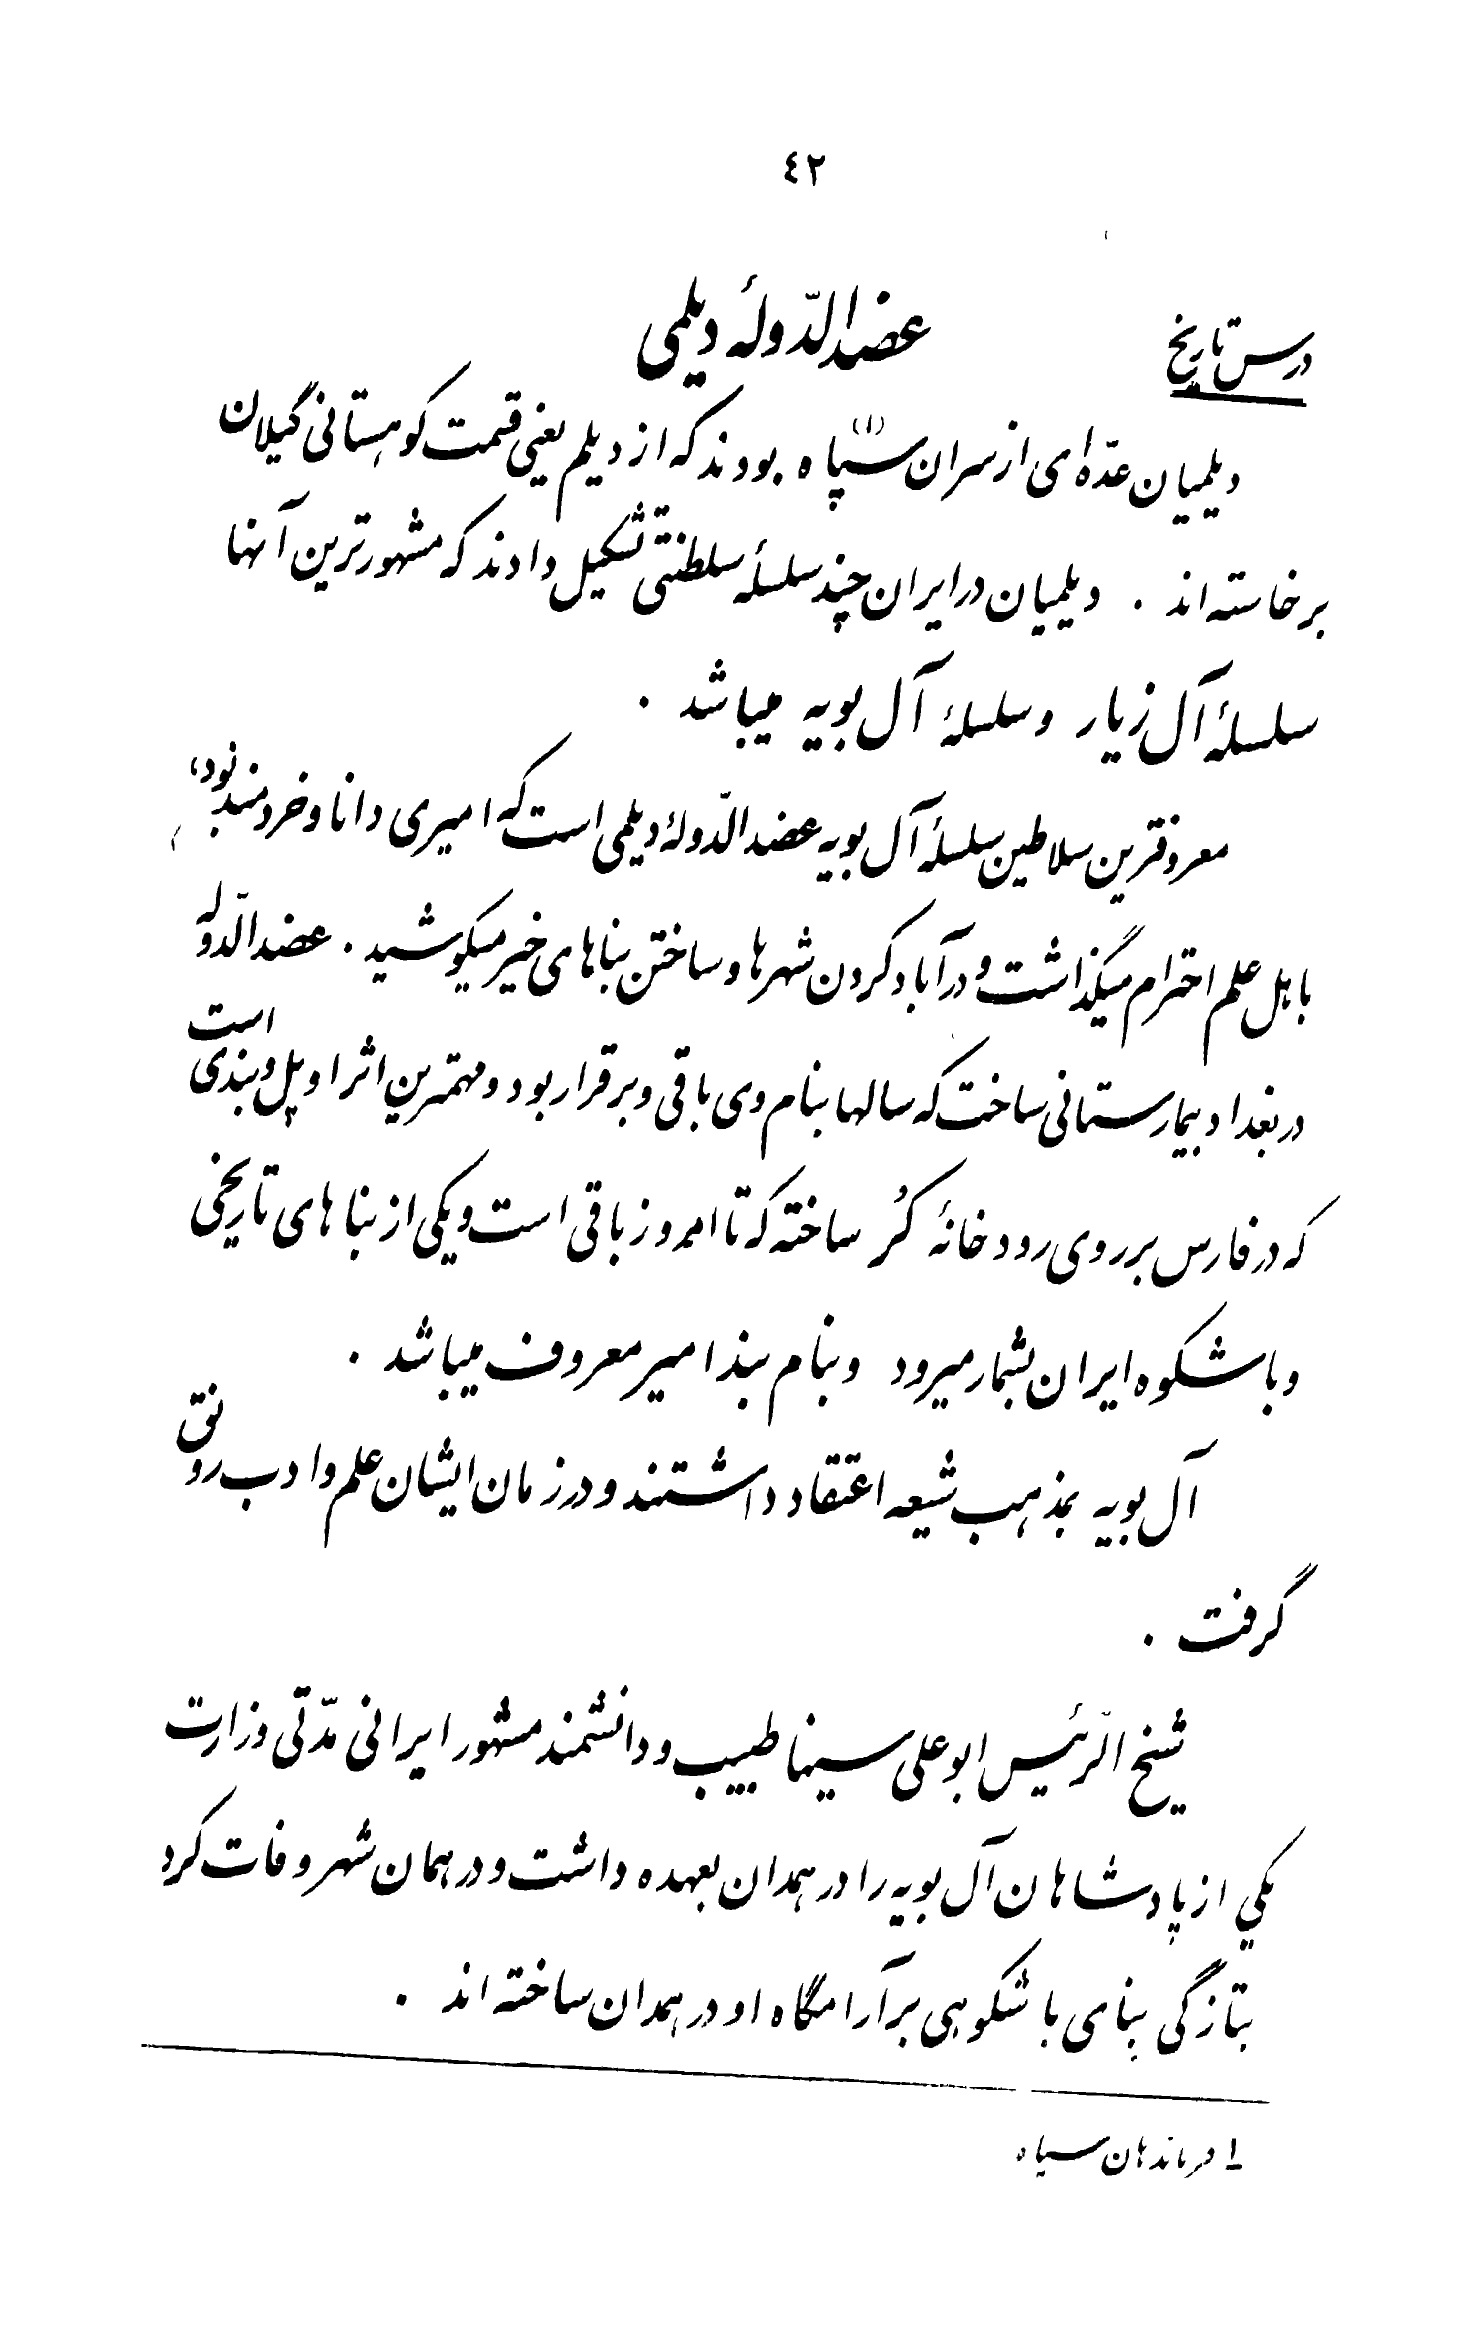 ٤٢
درس تاریخ
عضدالدّولهٔ دیلمی
دیلمیان عدّه‌ای از سران سپاه (۱) بودند که از دیلم یعنی قسمت کوهستانی گیلان
برخاسته‌اند . دیلمیان در ایران چند سلسلهٔ سلطنتی تشکیل دادند که مشهورترین آنها
سلسلهٔ آل زیار و سلسلهٔ آل بویه میباشد .
معروفترین سلاطین سلسلهٔ آل بویه عضدالدّولهٔ دیلمی است که امیری دانا و خردمند بود،
باهل علم احترام میگذاشت و در آباد کردن شهرها و ساختن بناهای خیر میکوشید . عضدالدّوله
در بغداد بیمارستانی ساخت که سالها بنام وی باقی و برقرار بود و مهمترین اثر او پل و بندی است
که در فارس بر روی رودخانهٔ کُر ساخته که تا امروز باقی است و یکی از بناهای تاریخی
و با شکوه ایران بشمار میرود و بنام بند امیر معروف میباشد .
آل بویه بمذهب شیعه اعتقاد داشتند و در زمان ایشان علم و ادب رونق
گرفت .
شیخ الرّئیس ابوعلی سینا طبیب و دانشمند مشهور ایرانی مدّتی وزارت
یکی از پادشاهان آل بویه را در همدان بعهده داشت و در همان شهر وفات کرد
بتازگی بنای با شکوهی بر آرامگاه او در همدان ساخته‌اند .
۱ـ فرماندهان سپاه